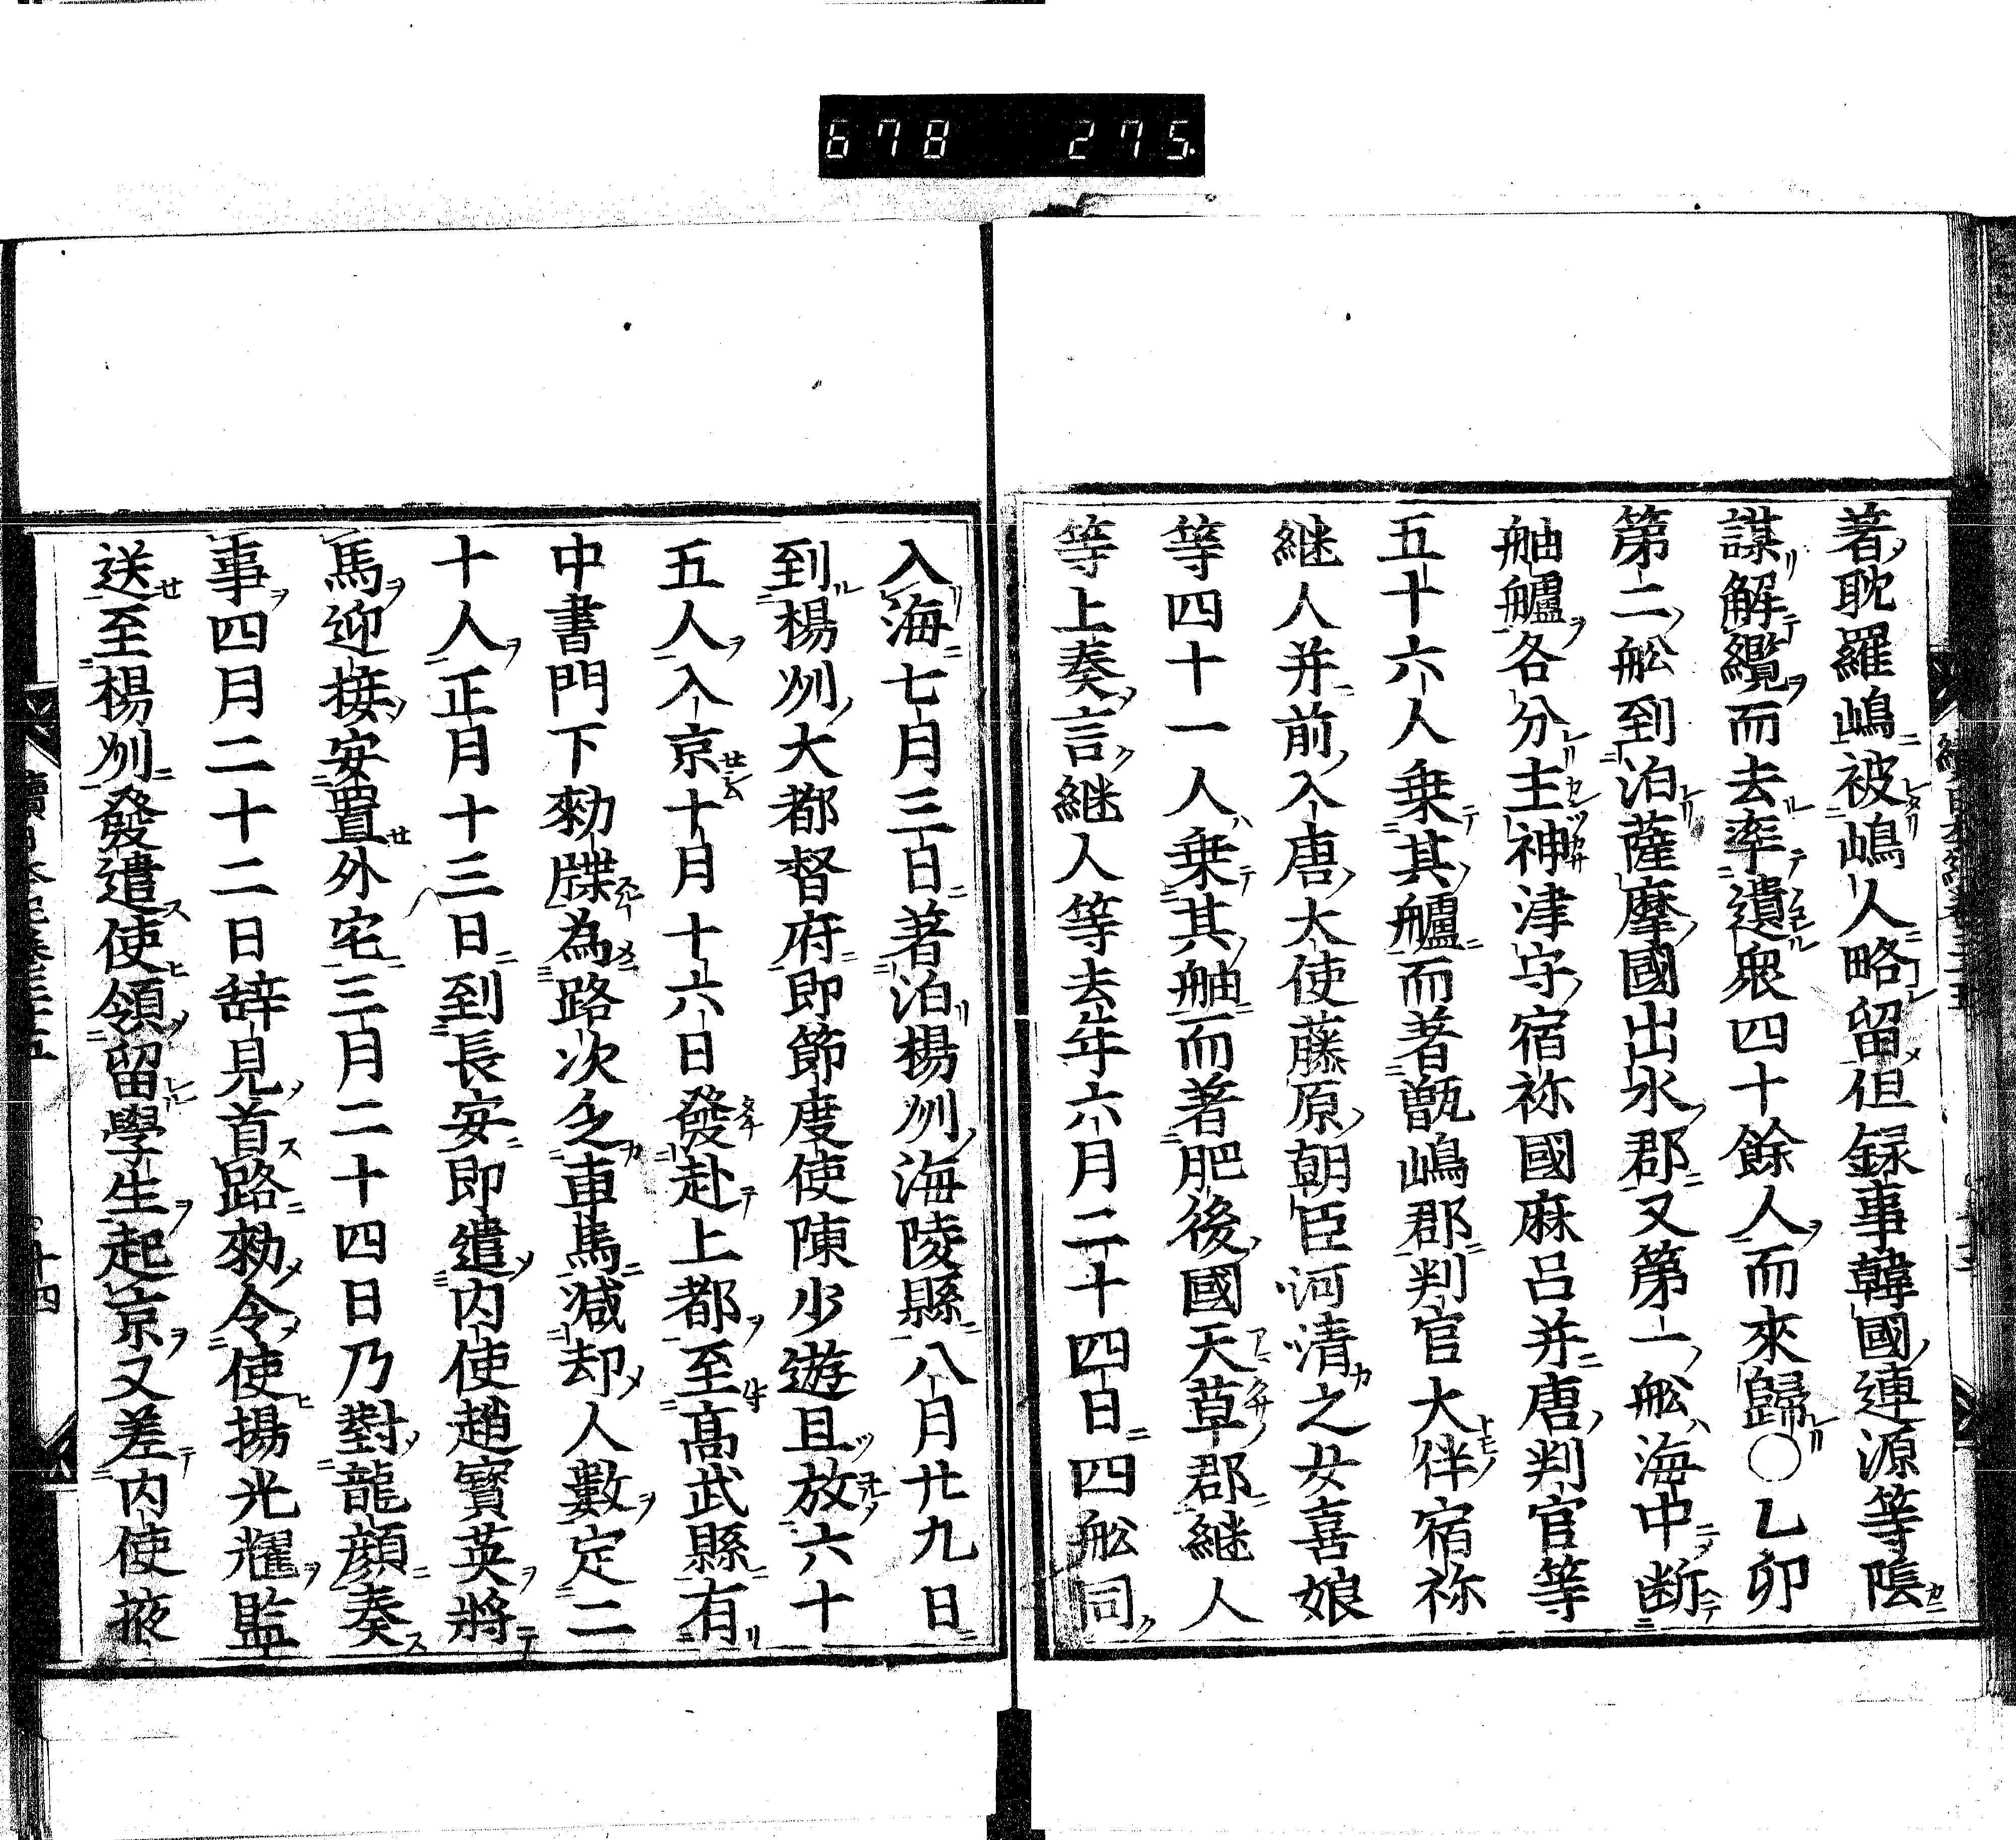 678 275.
著耽羅嶋被嶋人略留但録事韓國連源等隂
謀解纜而去率遺衆四十餘人而來歸○乙卯
第二舩到泊薩摩國出水郡又第一舩海中断
舳艫各分主神津守宿祢國麻呂并唐判官等
五十六人乗其艫而著甑嶋郡判官大伴宿祢
継人并前入唐大使藤原朝臣河清之女喜娘
等四十一人乗其舳而著肥後國天草郡継人
等上奏言継人等去年六月二十四日四舩同
入海七月三日著泊楊州海陵縣八月廿九日
到楊州大都督府即節度使陳少遊且放六十
五人入京十月十六日發赴上都至髙武縣有
中書門下勅牒為路次乏車馬減却人數定二
十人正月十三日到長安即遣内使趙寳英將
馬迎接安置外宅三月二十四日乃對龍顔奏
事四月二十二日辞見首路勅令使揚光耀監
送至楊州發遣使領留學生起京又差内使掖